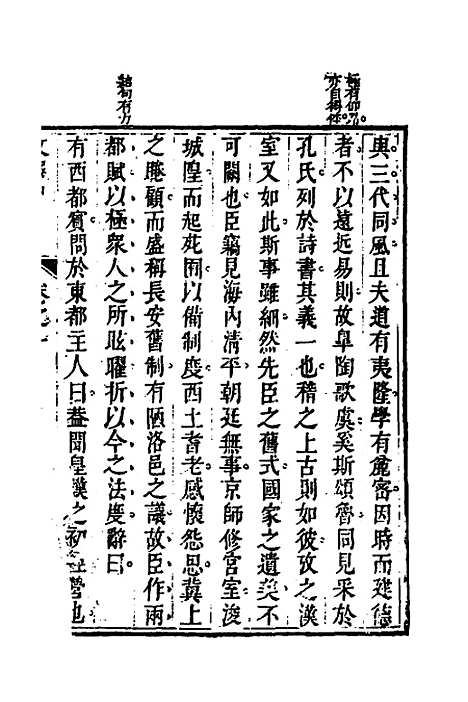 與三代同風且夫道有夷隆學有麄密因時而建德
者不以遠近易則故臯陶歌虞奚斯頌魯同見采於
孔氏列於詩書其義一也稽之上古則如彼攷之漢
室又如此斯事雖細然先臣之舊式國家之遺美不
可闕也臣竊見海內清平朝廷無事京師修宮室浚
城隍而起苑囿以備制度西土耆老感懷怨思冀上
之睠顧而盛稱長安舊制有陋洛邑之議故臣作兩
都賦以極眾人之所眩曜折以今之法度辭曰
有西都賓問於東都主人曰葢聞皇漢之初經營也
結句有力